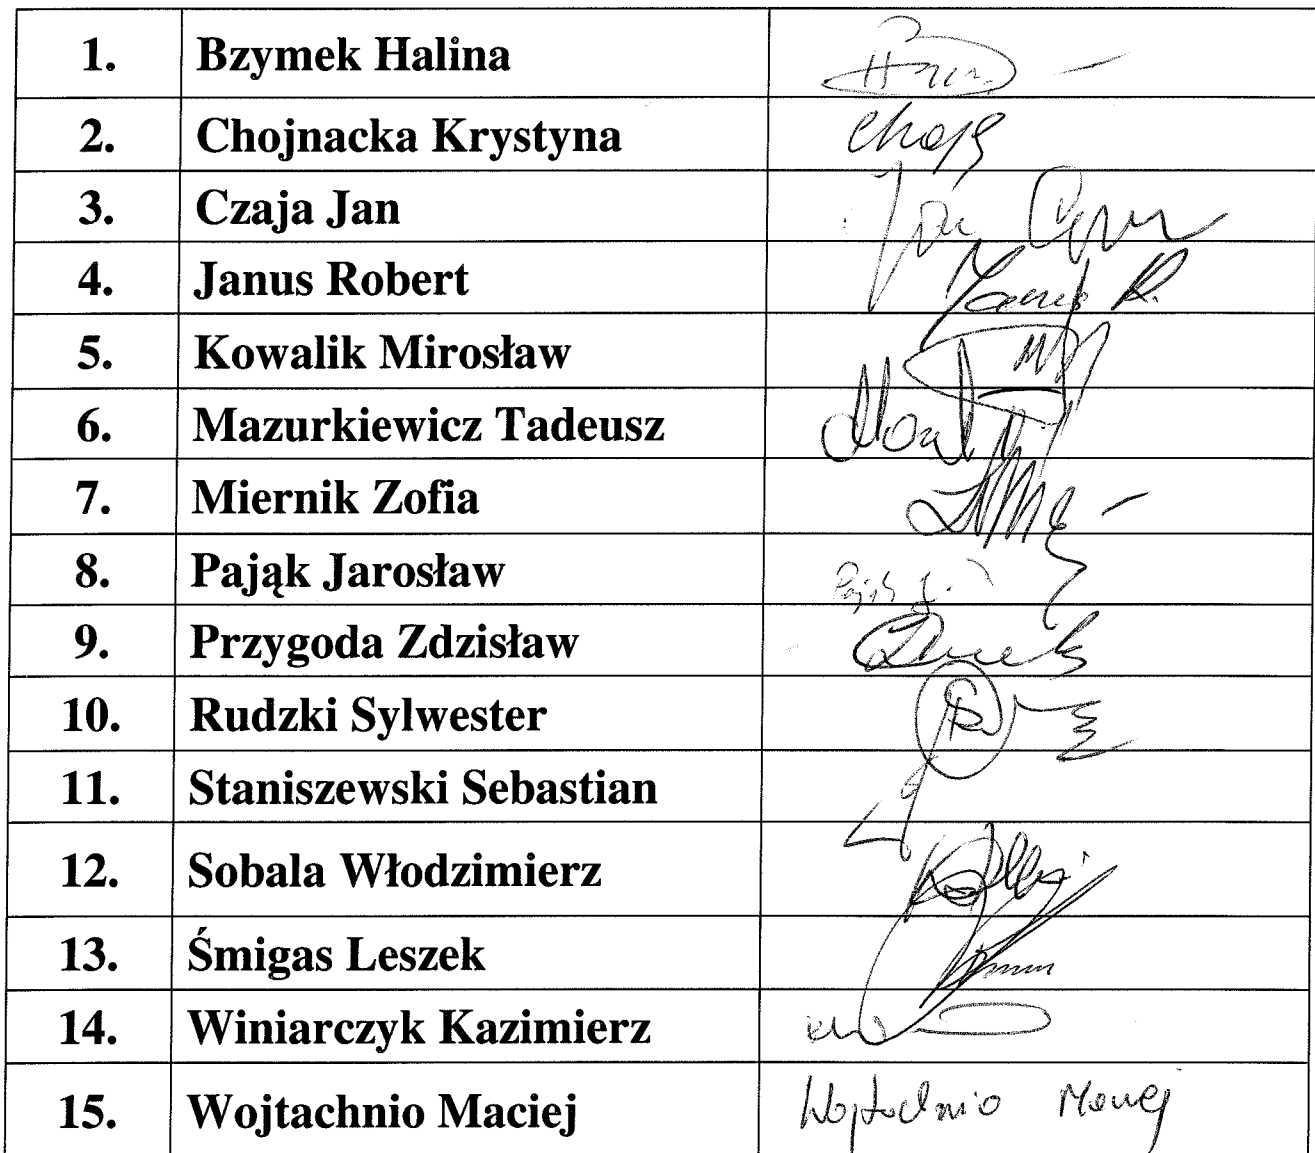 1. Bzymek Halina
2. Chojnacka Krystyna
3. Czaja Jan Jan
4. Janus Robert Janus R.
5. Kowalik Mirosław
6. Mazurkiewicz Tadeusz
7. Miernik Zofia
8. Pająk Jarosław Pająk J.
9. Przygoda Zdzisław
10. Rudzki Sylwester
11. Staniszewski Sebastian
12. Sobala Włodzimierz
13. Śmigas Leszek
14. Winiarczyk Kazimierz
15. Wojtachnio Maciej Wojtachnio Maciej